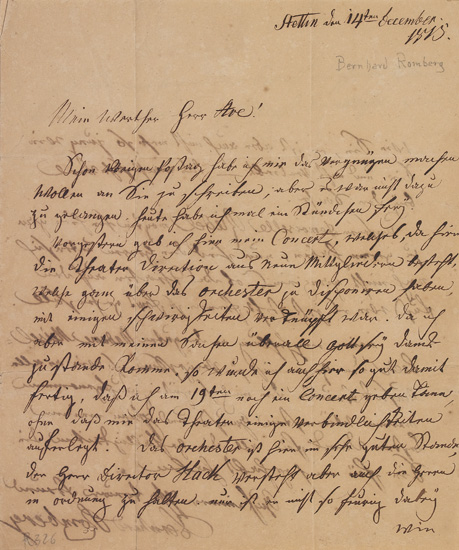 Stettin den 14ten December.
1815.
Bernhard Romberg
Mein Werther Herr
Schon vorigen Posttag habe ich mir das Vergnügen machen
wollen an Sie zu schreiben, aber es war nicht dazu
zu gelangen. heute habe ich mal ein Stündchen frey
Vorgestern gab ich hier mein Concert, welches, da hier
die Theater Direction aus Neun Mittgliedern besteht,
welche gern über das orchester zu disponiren haben
mit einigen Schwierigkeiten verknüpft war. da ich
aber mit meinen Sachen überall gott sey dank
zu stande komme, so wurde ich auch hier so gut damit
fertig, daß ich am 19ten noch ein Concert geben kann,
ohne daß mir das Theater einige Verbindlichkeiten
auferlegt. Das orchester ist hier in sehr gutem Stande,
der Herr Director Haack versteht aber auch die Herrn
in ordnung zu halten nur ist er nicht so feurig dabey
wie